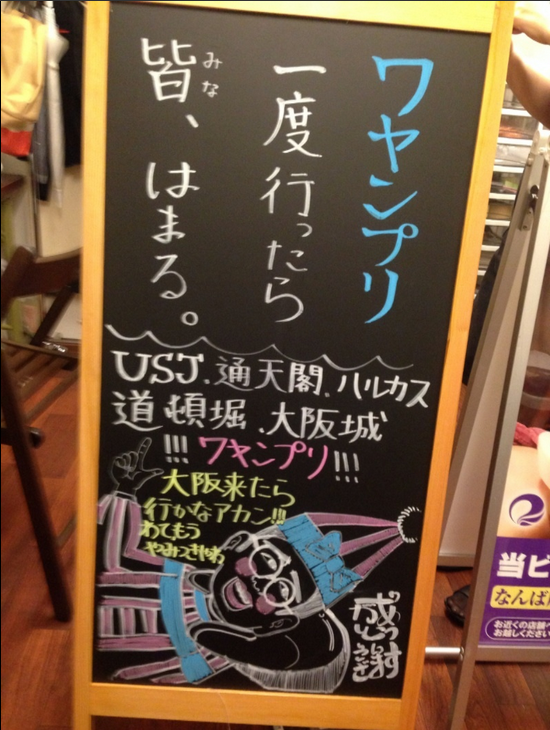 ワヤンプリ
一度行ったら
皆、はまる。
みな
USJ.通天閣.ハルカス
道頓堀.大阪城
!!!ワヤンプリ!!!
大阪来たら
行かなアカン!!
おてもう
やみつきやわ
当ビ
なんば
お近くの店舗へ
お越しください